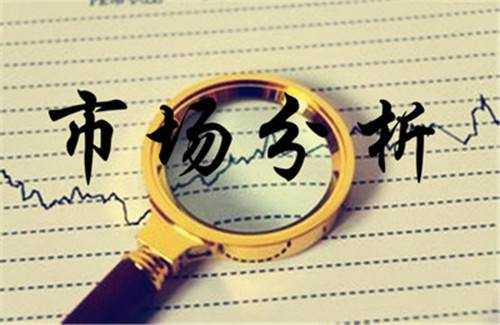 市场分析